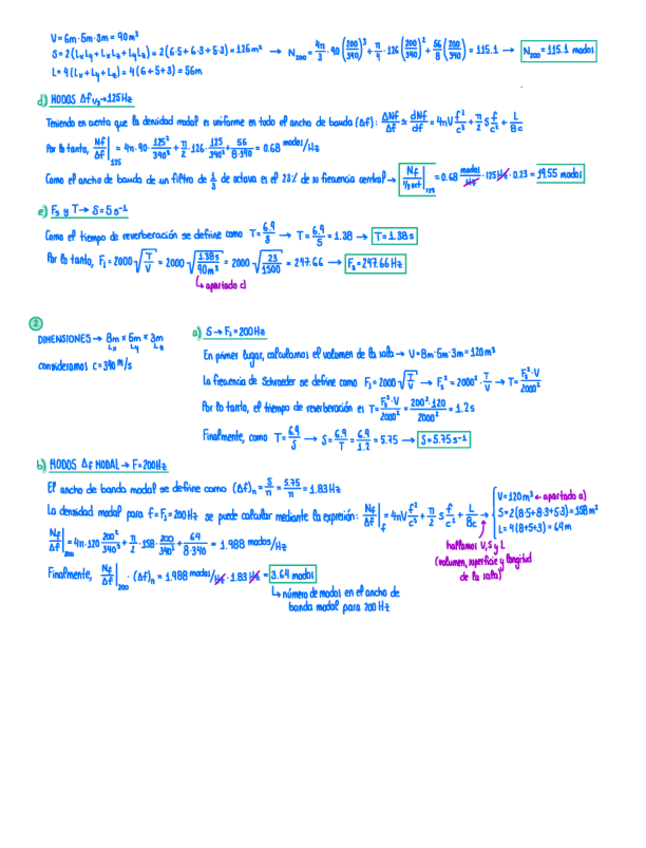 V = 6m·5m·3m = 90m³
S = 2(LxLy + LxLz + LyLz) = 2(6·5 + 6·3 + 5·3) = 126m² → N₂₀₀ = 4π/3 · 90 (200/340)³ + π/4 · 126 (200/340)² + 56/8 (200/340) = 115.1 → N₂₀₀ = 115.1 modos
L = 4(Lx + Ly + Lz) = 4(6+5+3) = 56m
d) MODOS Δf 1/3 → 125Hz
Teniendo en cuenta que la densidad modal es uniforme en todo el ancho de banda (Δf): ΔNf/Δf ≃ dNf/df = 4πV f²/c³ + π/2 S f/c² + L/8c
Por lo tanto, Nf/Δf |₁₂₅ = 4π·90· 125²/340³ + π/2 · 126 · 125/340² + 56/8·340 = 0.68 modos/Hz
Como el ancho de banda de un filtro de 1/3 de octava es el 23% de su frecuencia central → Nf/1/3 oct |₁₂₅ = 0.68 modos/Hz · 125Hz · 0.23 = 19.55 modos
e) Fs y T → δ = 5 s⁻¹
Como el tiempo de reverberación se define como T = 6.9/δ → T = 6.9/5 = 1.38 → T = 1.38s
Por lo tanto, Fs = 2000 √(T/V) = 2000 √(1.38s/90m³) = 2000 √(23/1500) = 247.66 → Fs = 247.66 Hz
↳ apartado c)
②
DIMENSIONES → 8m × 5m × 3m
Lx Ly Lz
consideramos c = 340 m/s
a) δ → Fs = 200Hz
En primer lugar, calculamos el volumen de la sala → V = 8m·5m·3m = 120m³
La frecuencia de Schroeder se define como Fs = 2000 √(T/V) → Fs² = 2000² · T/V → T = Fs²·V/2000²
Por lo tanto, el tiempo de reverberación es T = Fs²·V/2000² = 200²·120/2000² = 1.2s
Finalmente, como T = 6.9/δ → δ = 6.9/T = 6.9/1.2 = 5.75 → δ = 5.75 s⁻¹
b) MODOS Δf MODAL → F = 200Hz
El ancho de banda modal se define como (Δf)n = δ/π = 5.75/π = 1.83Hz
La densidad modal para f = Fs = 200Hz se puede calcular mediante la expresión: Nf/Δf |f = 4πV f²/c³ + π/2 S f/c² + L/8c →
V = 120m³ ← apartado a)
S = 2(8·5+8·3+5·3) = 158m²
L = 4(8+5+3) = 64m
hallamos V, S y L
(volumen, superficie y longitud
de la sala)
Nf/Δf |₂₀₀ = 4π·120 200²/340³ + π/2 · 158 · 200/340² + 64/8·340 = 1.988 modos/Hz
Finalmente, Nf/Δf |₂₀₀ · (Δf)n = 1.988 modos/Hz · 1.83 Hz = 3.64 modos
↳ número de modos en el ancho de
banda modal para 200 Hz